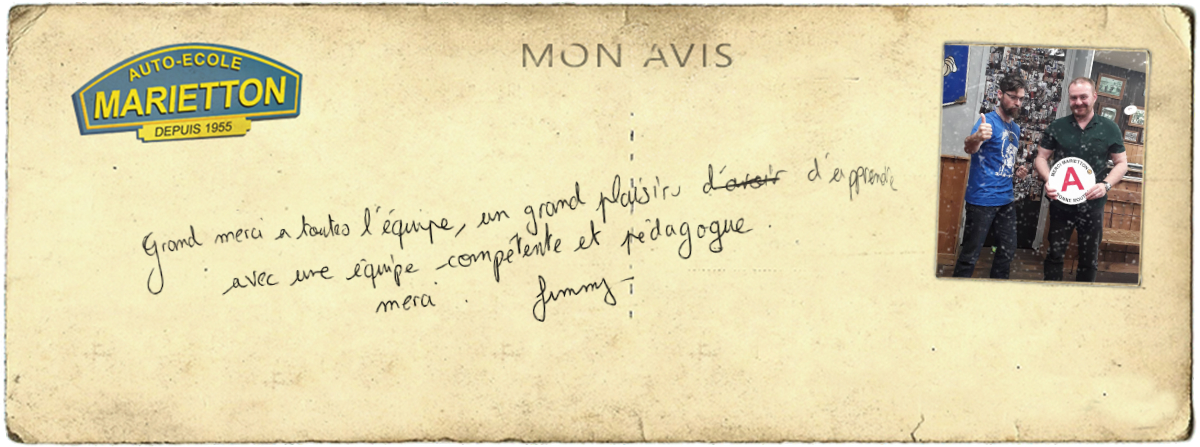 MON AVIS
AUTO-ECOLE
MARIETTON
DEPUIS 1955
MERCI MARIETTON
A
BONNE ROUTE
Grand merci a toutes l'équipe, un grand plaisirs d'avoir d'apprendre
avec une équipe compétente et pédagogue.
merci. Jimmy